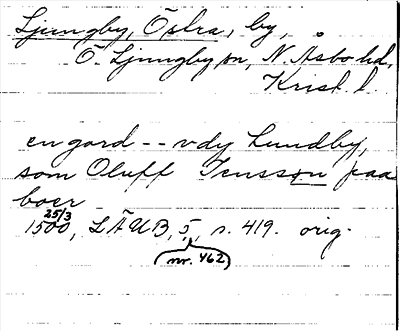 Ljungby, Östra, by,
Ö. Ljungby sn, N. Åsbo hd,
Krist. l.
en gard -- vdy Lundby,
som Oluff Jensson paa
boer
25/3
1500, LÄUB, 5, s. 419. orig.
(nr. 462)